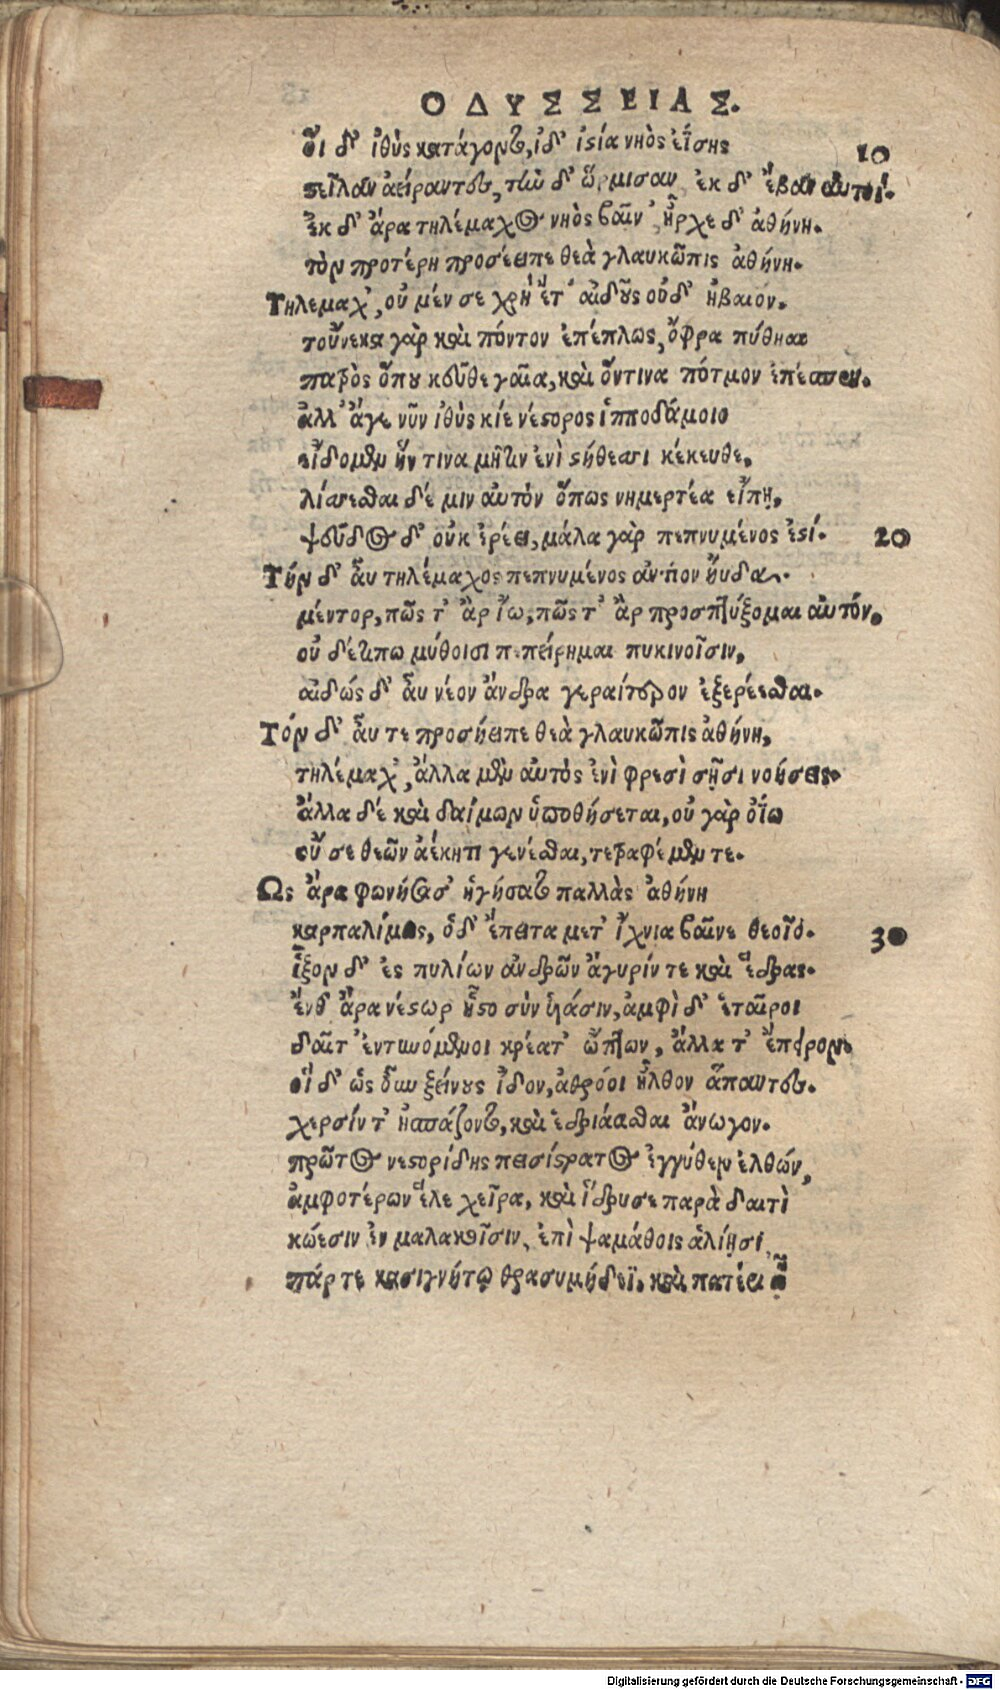 ΟΔΥΣΣΕΙΑΣ.
οἵ δ' ἰθὺς κατάγοντο, ἰδ' ἱστία νηὸς ἐΐσης 10
στεῖλαν ἀείραντες, τὴν δ' ὥρμισαν, ἐκ δ' ἔβαν αὐτοί.
ἐκ δ' ἄρα τηλέμαχος νηὸς βαῖν', ἦρχε δ' ἀθήνη.
τὸν προτέρη προσέειπε θεὰ γλαυκῶπις ἀθήνη.
Τηλεμαχ', οὐ μέν σε χρὴ ἔτ' αἰδοῦς οὐδ' ἠβαιόν.
τοὔνεκα γὰρ καὶ πόντον ἐπέπλως, ὄφρα πύθηαι
πατρὸς ὅπου κεύθε γαῖα, καὶ ὅντινα πότμον ἐπέσπεν.
ἀλλ' ἄγε νῦν ἰθὺς κίε νέστορος ἱπποδάμοιο
εἴδομεν ἥν τινα μῆτιν ἐνὶ στήθεσσι κέκευθε,
λίσσεσθαι δέ μιν αὐτὸν ὅπως νημερτέα εἴπῃ,
ψεῦδος δ' οὐκ ἐρέει, μάλα γὰρ πεπνυμένος ἐστί. 20
Τὴν δ' αὖ τηλέμαχος πεπνυμένος ἀντίον ηὔδα.
μέντορ, πῶς τ' ἂρ ἴω, πῶς τ' ἂρ προσπτύξομαι αὐτόν,
οὐ δέ τι πω μύθοισι πεπείρημαι πυκινοῖσιν,
αἰδὼς δ' αὖ νέον ἄνδρα γεραίτερον ἐξερέεσθαι.
Τόν δ' αὖ τε προσήειπε θεὰ γλαυκῶπις ἀθήνη,
τηλέμαχ', ἄλλα μὲν αὐτὸς ἐνὶ φρεσὶ σῇσι νοήσεις.
ἄλλα δέ καὶ δαίμων ὑποθήσεται, οὐ γὰρ ὀΐω
οὔ σε θεῶν ἀέκητι γενέσθαι, τετραφέμεν τε.
Ως ἄρα φωνήσασ' ἡγήσατο παλλὰς ἀθήνη
καρπαλίμως, ὁ δ' ἔπειτα μετ' ἴχνια βαῖνε θεοῖο. 30
ἷξον δ' ἐς πυλίων ἀνδρῶν ἄγυρίν τε καὶ ἕδρας.
ἔνθ' ἄρα νέστωρ ἧστο σὺν υἱάσιν, ἀμφὶ δ' ἑταῖροι
δαῖτ' ἐντυνόμενοι κρέατ' ὤπτων, ἄλλα τ' ἔπειρον.
οἵ δ' ὡς οὖν ξείνους ἴδον, ἀθρόοι ἦλθον ἅπαντες.
χερσίν τ' ἠσπάζοντο, καὶ ἑδριάασθαι ἄνωγον.
πρῶτος νεστορίδης πεισίστρατος ἐγγύθεν ἐλθών,
ἀμφοτέρων ἕλε χεῖρα, καὶ ἵδρυσε παρὰ δαιτὶ
κώεσιν ἐν μαλακοῖσιν, ἐπὶ ψαμάθοις ἁλίῃσι,
πάρ τε κασιγνήτῳ θρασυμήδεϊ, καὶ πατέρι ᾧ